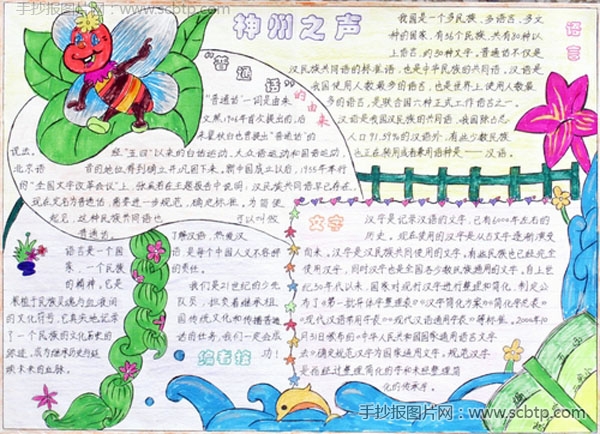 手抄报图片网：www.scbtp.com
神州之声
语言
我国是一个多民族、多语言、多文
种的国家，有56个民族，共有80种以
上语言，约30种文字，普通话不仅是
汉民族共同语的标准语，也是中华民族的共同语，汉语是
我国使用人数最多的语言，也是世界上使用人数最
多的语言，是联合国六种正式工作语言之一。
汉语是我国汉民族的共同语，我国除占总
人口91.59%的汉语外，有些少数民族
也正在转用或者兼用语种是——汉语。
"普通话"的由来
"普通话"一词是由朱
文熊1906年首次提出的，后
来瞿秋白也曾提出"普通话"的
说法。
经"五四"以来的白话运动、大众语运动和国语运动，
北京语
言的地位得到确立并巩固下来。新中国成立以后，1955年举行
的"全国文字改革会议"上，张奚若在主题报告中说明：汉民族共同语早已存在，
现在定名为普通话，需要进一步规范，确定标准。为简便
起见，这种民族共同语也
可以叫做
普通话。
语言是一个国
家，一个民族
的精神，它是
深植于民族灵魂与血液间
的文化符号，它真实地记录
了一个民族的文化历史的
踪迹，成为继承历史的延
续未来的血脉。
了解汉语，热爱汉
语，是每个中国人义不容辞
的责任。
我们是21世纪的少先
队员，担负着继承祖
国传统文化和传播普通
话的任务，我们一定会成
功！
文字
汉字是记录汉语的文字，已有6000年左右的
历史。现在使用的汉字是从古文字逐渐演变
而来。汉字是汉民族共同使用的文字，有些民族也已经完全
使用汉字，同时汉字也是全国各少数民族通用的文字。自上世
纪50年代以来，国家对现行汉字进行整理和简化，制定公
布了《第一批异体字整理表》《汉字简化方案》《简化字总表》
《现代汉语常用字表》《现代汉语通用字表》等标准。2000年10
月31日颁布的《中华人民共和国国家通用语言文字
法》确定规范汉字为国家通用文字。规范汉字
是指经过整理简化的字和未经整理简
化的传承字。
手抄报图片网：www.scbtp.com